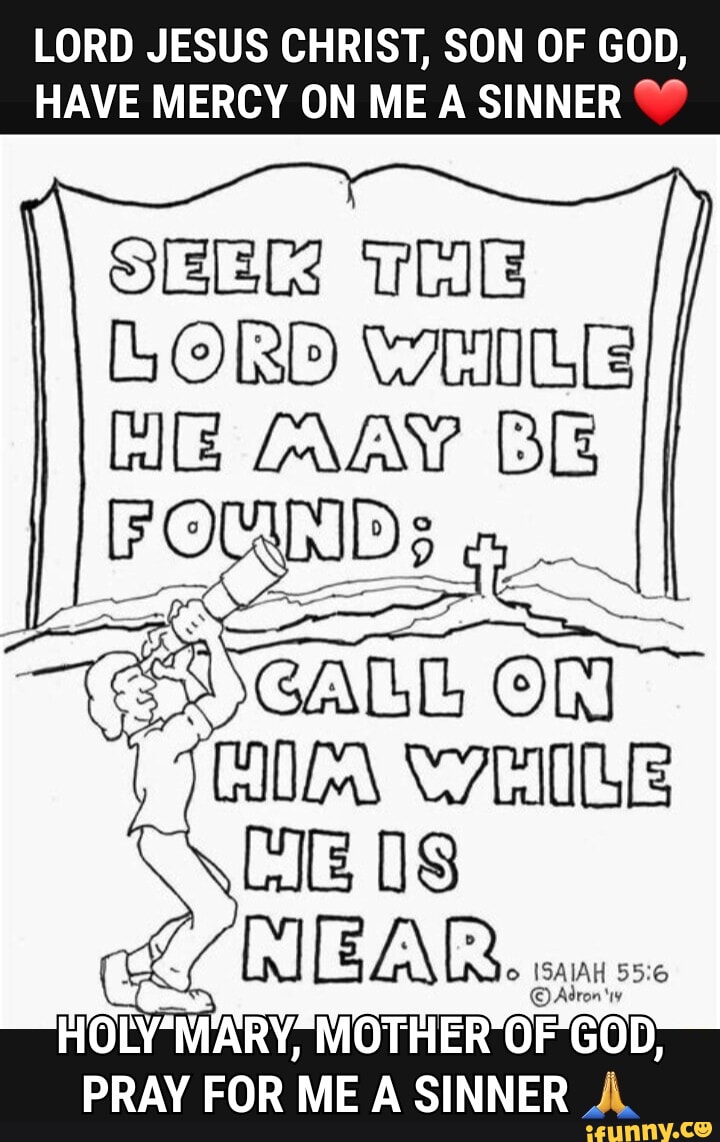 LORD JESUS CHRIST, SON OF GOD,
HAVE MERCY ON ME A SINNER ❤️
SEEK THE
LORD WHILE
HE MAY BE
FOUND;
CALL ON
HIM WHILE
HE IS
NEAR. ISAIAH 55:6
© Adron '14
HOLY MARY, MOTHER OF GOD,
PRAY FOR ME A SINNER 🙏
ifunny.co